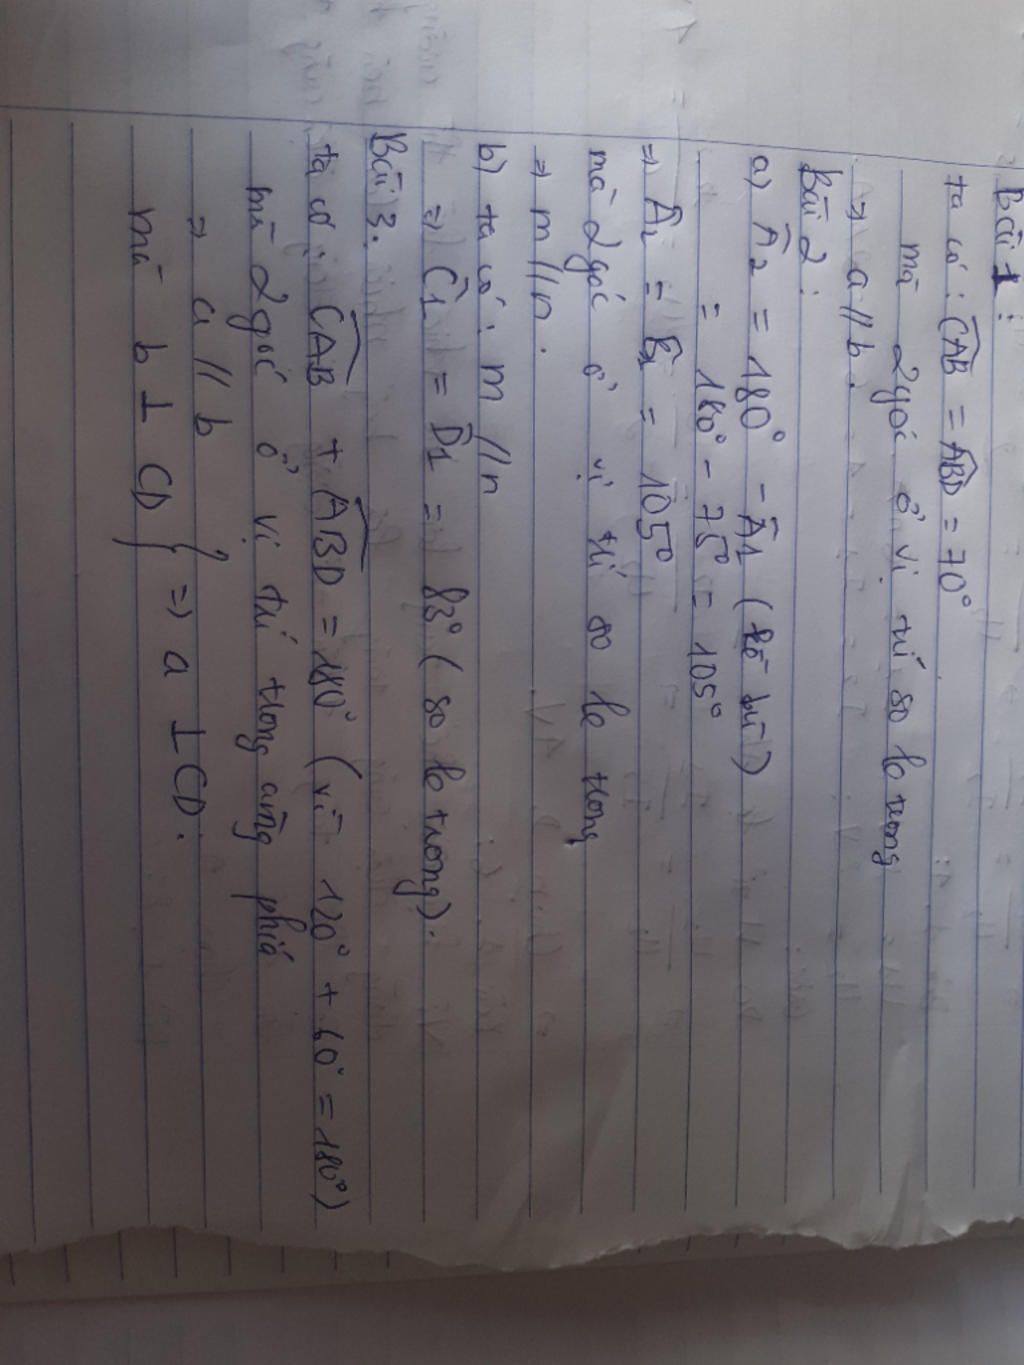 Bài 1:
ta có: CAB = ABD = 70°
mà 2 góc ở vị trí so le trong
=> a // b.
Bài 2:
a) Â2 = 180° - Â1 (kề bù)
= 180° - 75° = 105°
=> Â2 = B̂2 = 105°
mà 2 góc ở vị trí so le trong
=> m // n.
b) ta có: m // n
=> Ĉ1 = D̂1 = 83° (so le trong).
Bài 3.
ta có: CAB + ABD = 180° (vì 120° + 60° = 180°)
mà 2 góc ở vị trí trong cùng phía
=> a // b
mà b ⊥ CD } => a ⊥ CD.